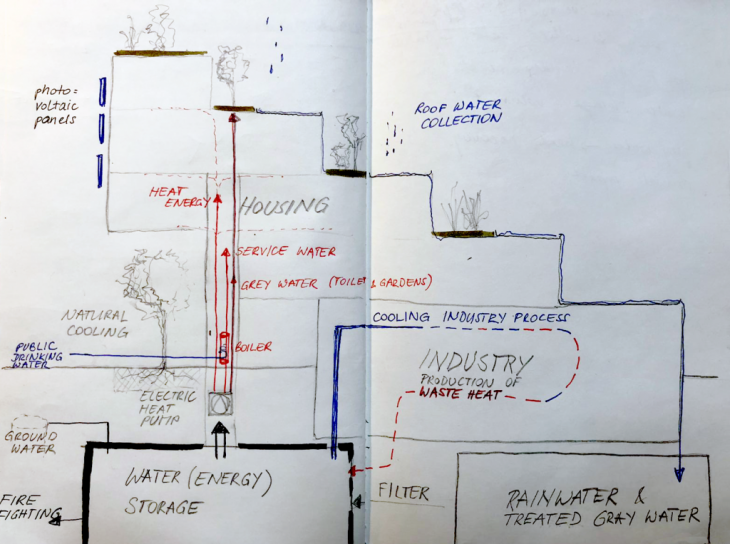 photo=
voltaic
panels
ROOF WATER
COLLECTION
HEAT
ENERGY
HOUSING
SERVICE WATER
GREY WATER (TOILET & GARDENS)
NATURAL
COOLING
COOLING INDUSTRY PROCESS
PUBLIC
DRINKING
WATER
BOILER
INDUSTRY
PRODUCTION OF
WASTE HEAT
ELECTRIC
HEAT
PUMP
GROUND
WATER
WATER (ENERGY)
STORAGE
FILTER
RAINWATER &
TREATED GRAY WATER
FIRE
FIGHTING